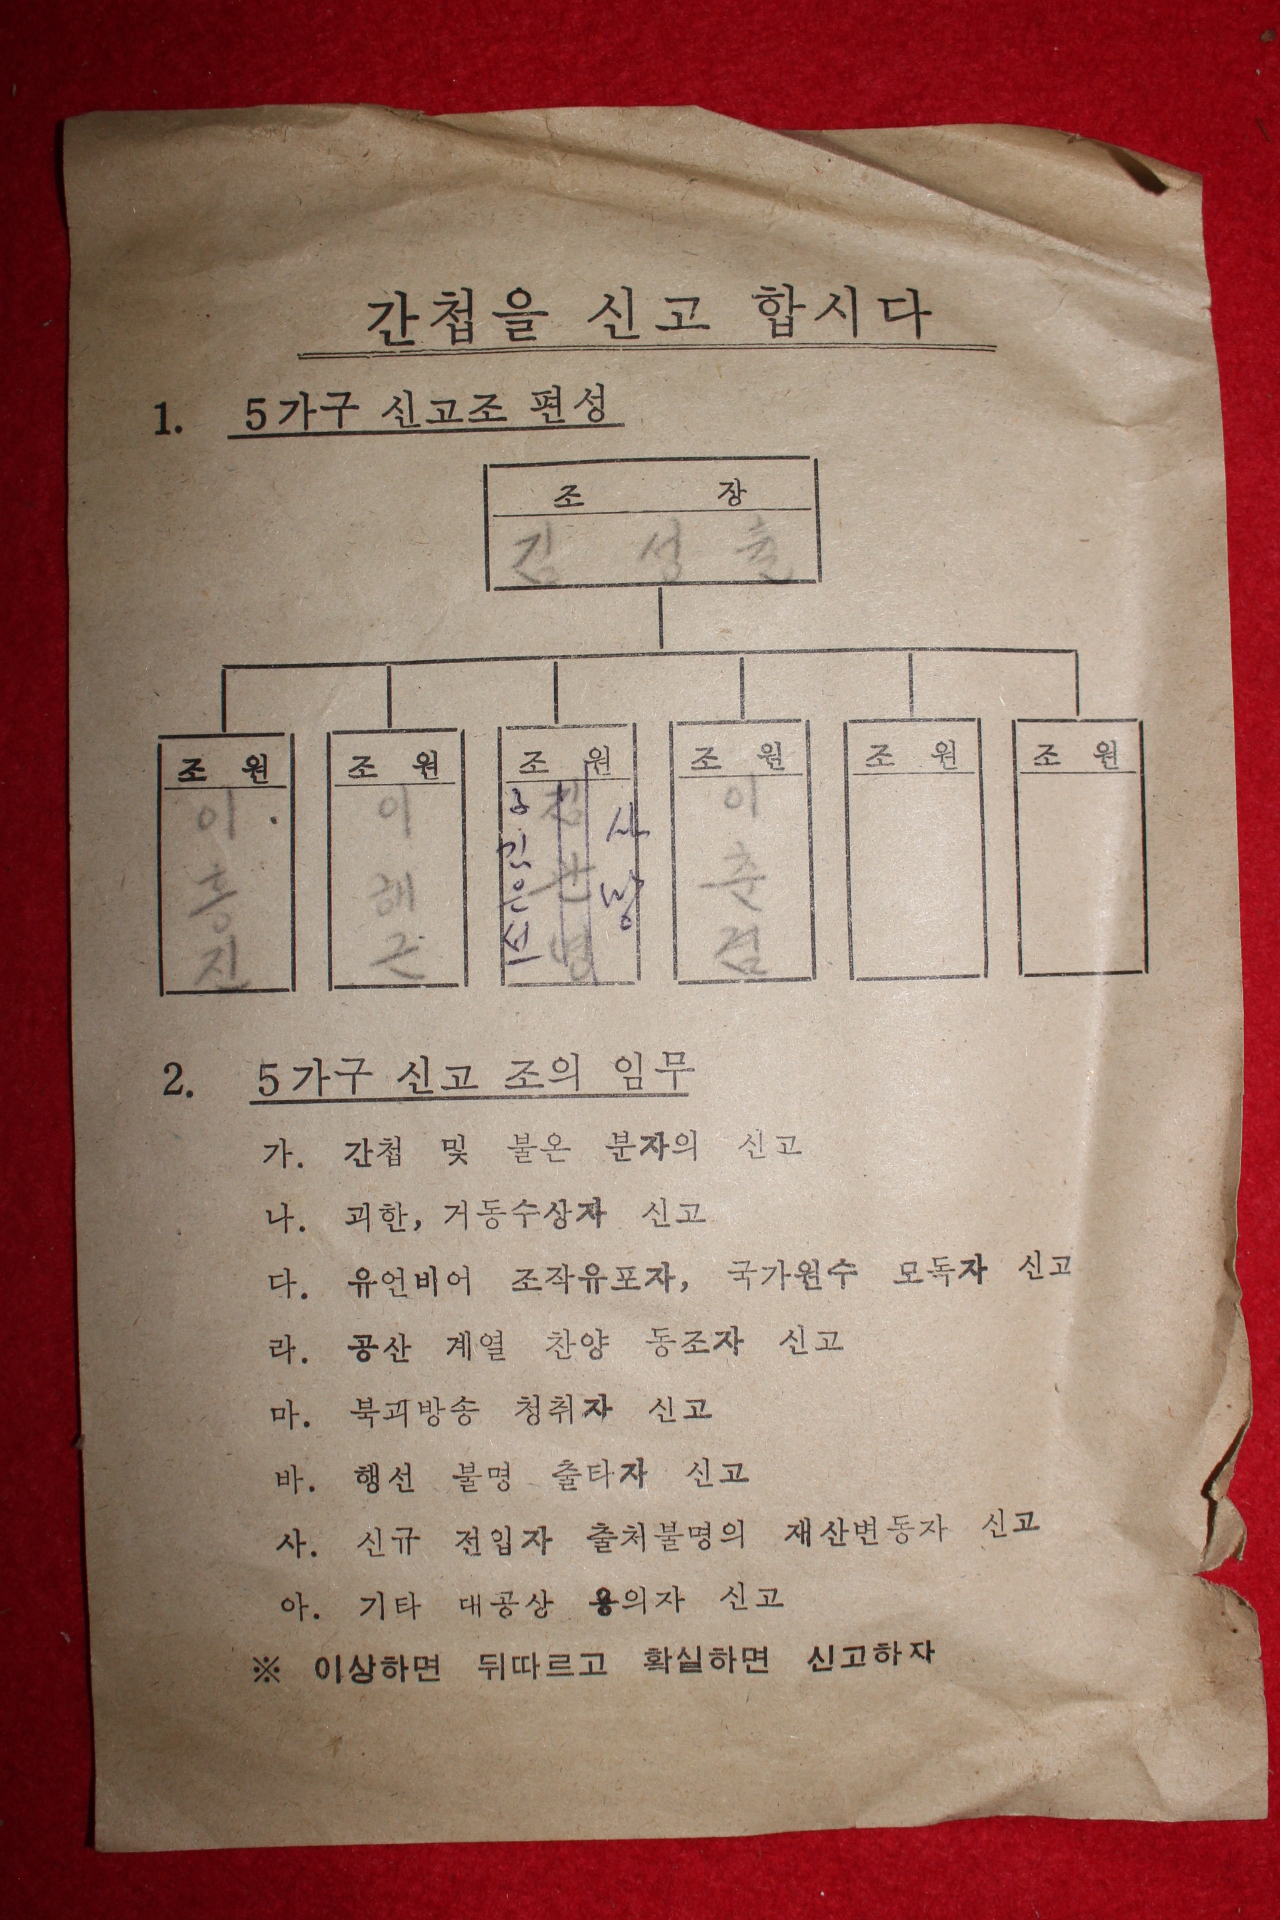 간첩을 신고 합시다
1. 5가구 신고조 편성
조 장
김 성
조 원 조 원 조 원 조 원 조 원 조 원
이 홍 진
이 해 근
김 관 병
김은서
사망
이 춘 겸
2. 5가구 신고 조의 임무
가. 간첩 및 불온 분자의 신고
나. 괴한, 거동수상자 신고
다. 유언비어 조작유포자, 국가원수 모독자 신고
라. 공산 계열 찬양 동조자 신고
마. 북괴방송 청취자 신고
바. 행선 불명 출타자 신고
사. 신규 전입자 출처불명의 재산변동자 신고
아. 기타 대공상 용의자 신고
※ 이상하면 뒤따르고 확실하면 신고하자